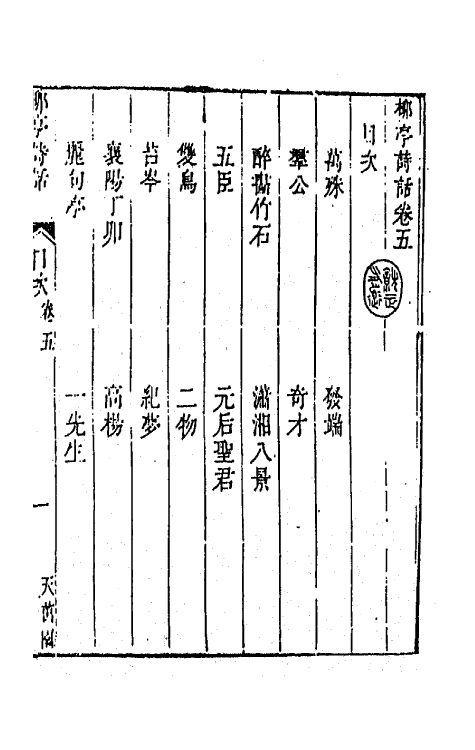 柳亭詩話卷五
目次
萬殊 發端
羣公 奇才
醉醫竹石 瀟湘八景
五臣 元后聖君
雙鳥 二物
苔岑 紀夢
襄陽丁卯 高楊
麗句亭 一先生
柳亭詩話 目次卷五 一 天茁園